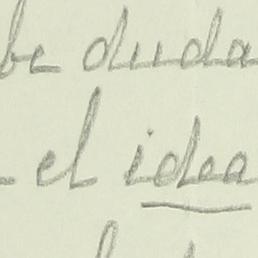 be duda
el idea